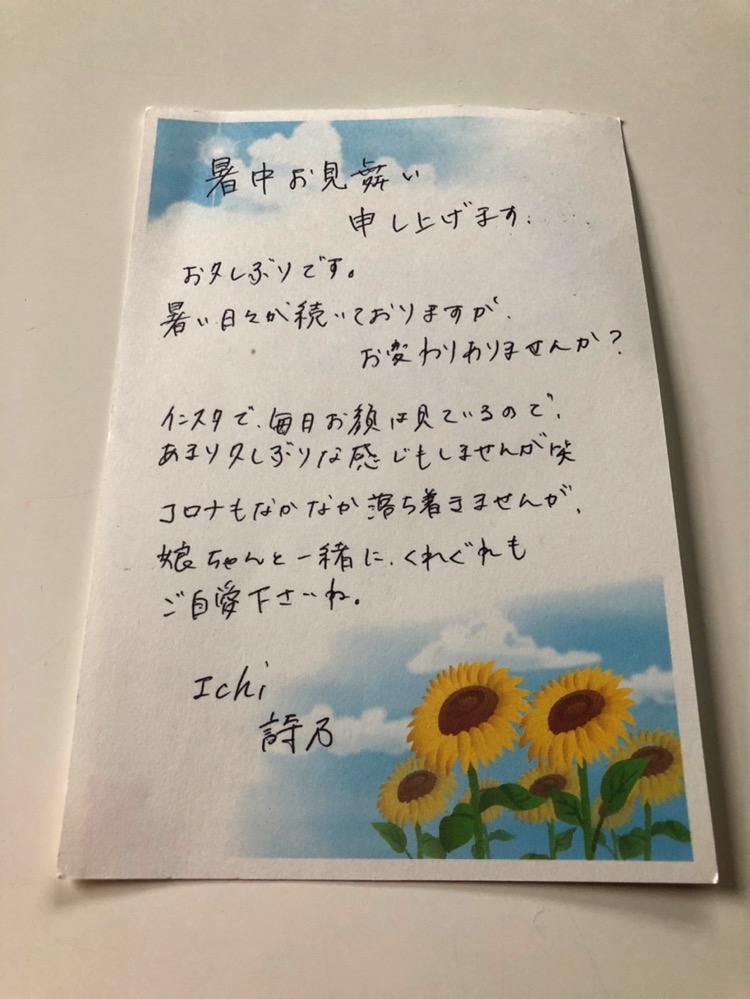 暑中お見舞い
申し上げます.
お久しぶりです。
暑い日々が続いておりますが、
お変わりありませんか?
インスタで、毎日お顔は見ているので、
あまり久しぶりな感じもしませんが笑
コロナもなかなか落ち着きませんが、
娘ちゃんと一緒に、くれぐれも
ご自愛下さいね。
Ichi
詩乃